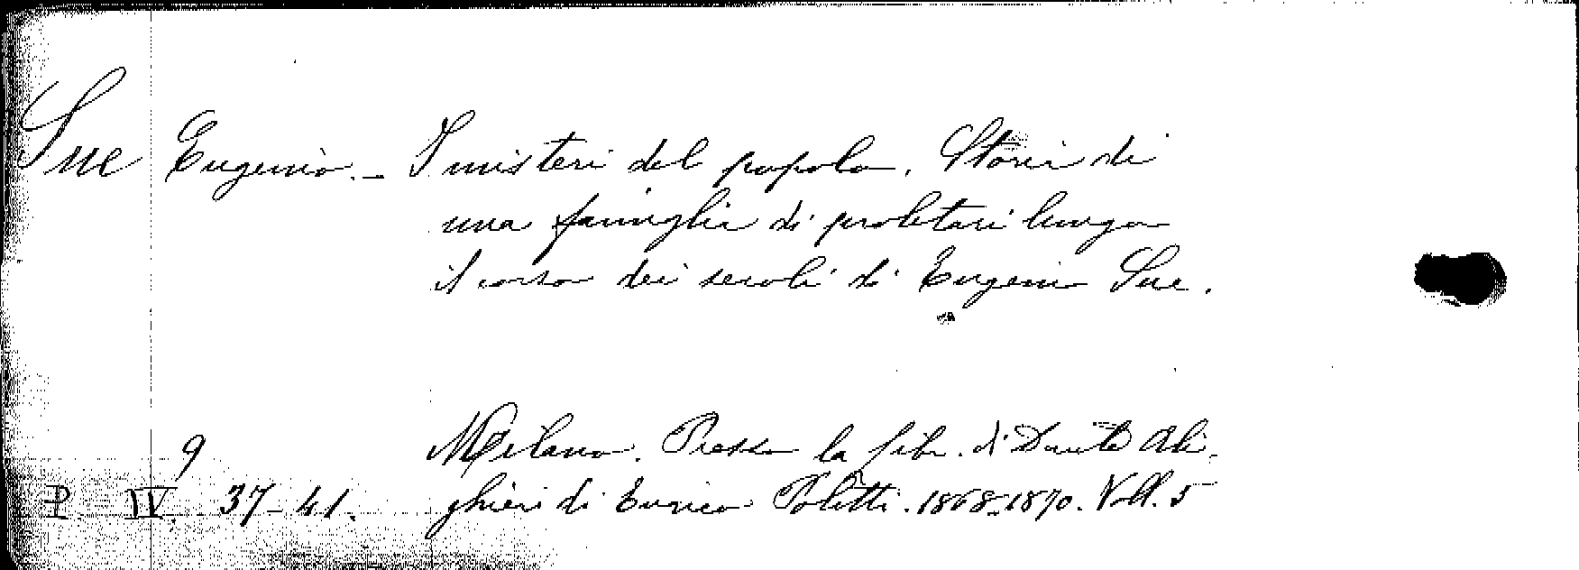 Sue Eugenio. - I misteri del popolo. Storia di
una famiglia di proletari lungo
il corso dei secoli di Eugenio Sue.
Milano. Presso la libr. di Dante Ali-
9
P. IV. 37-41. ghieri di Enrico Politti. 1868-1870. Voll. 5